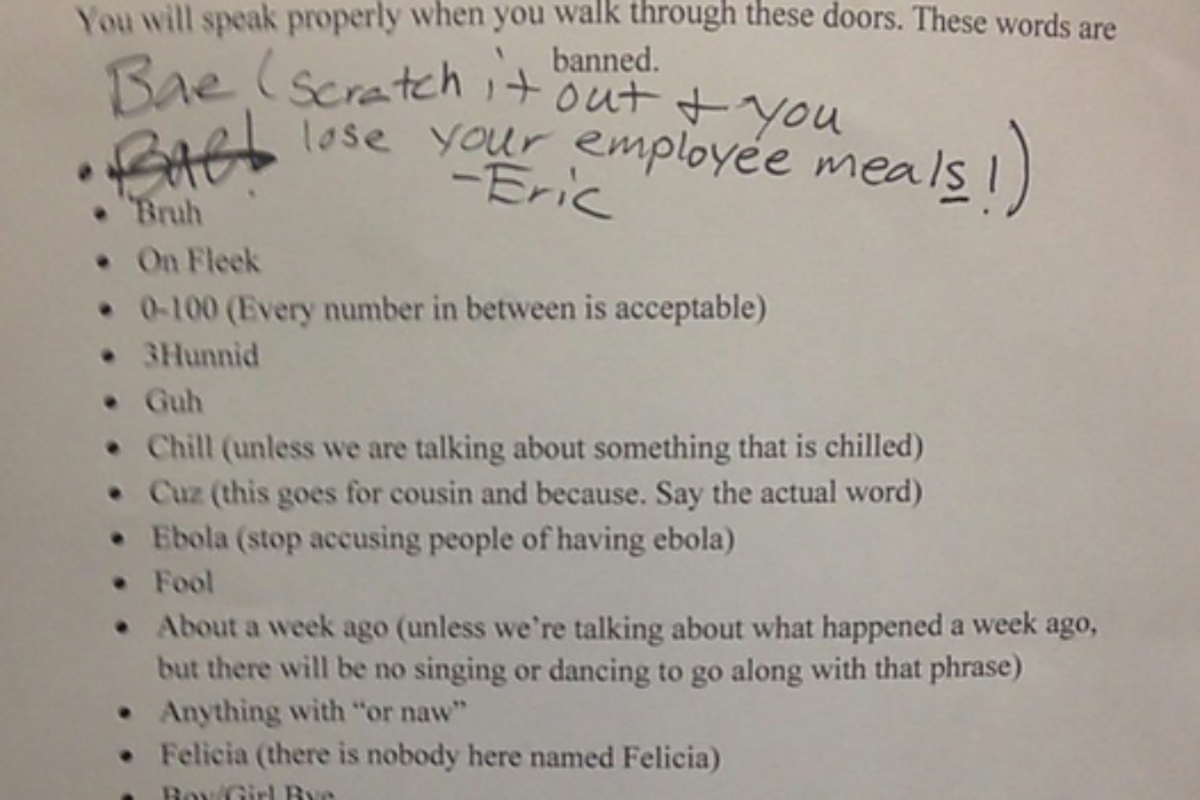 You will speak properly when you walk through these doors. These words are
banned.
Bae (scratch it out + you
lose your employee meals!)
-Eric
• Bae!
• Bruh
• On Fleek
• 0-100 (Every number in between is acceptable)
• 3Hunnid
• Guh
• Chill (unless we are talking about something that is chilled)
• Cuz (this goes for cousin and because. Say the actual word)
• Ebola (stop accusing people of having ebola)
• Fool
• About a week ago (unless we're talking about what happened a week ago,
but there will be no singing or dancing to go along with that phrase)
• Anything with “or naw”
• Felicia (there is nobody here named Felicia)
• Boy/Girl Bye